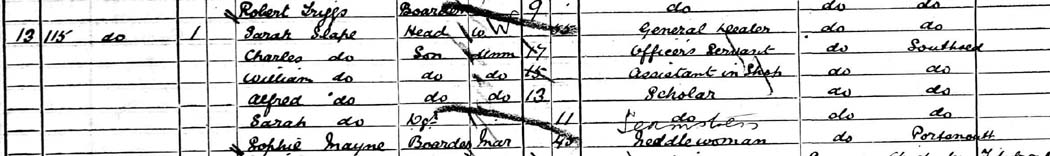 Robert Griggs Boarder 9 do do do
13 115 do 1 Sarah Slape Head W 55 General Dealer do do
Charles do Son Unm 17 Officer's Servant do Southsea
William do do do 15 Assistant in Shop do do
Alfred do do do 13 Scholar do do
Sarah do Dr 11 do do do
Sophie Mayne Boarder Mar 45 Needlewoman do Portsmouth